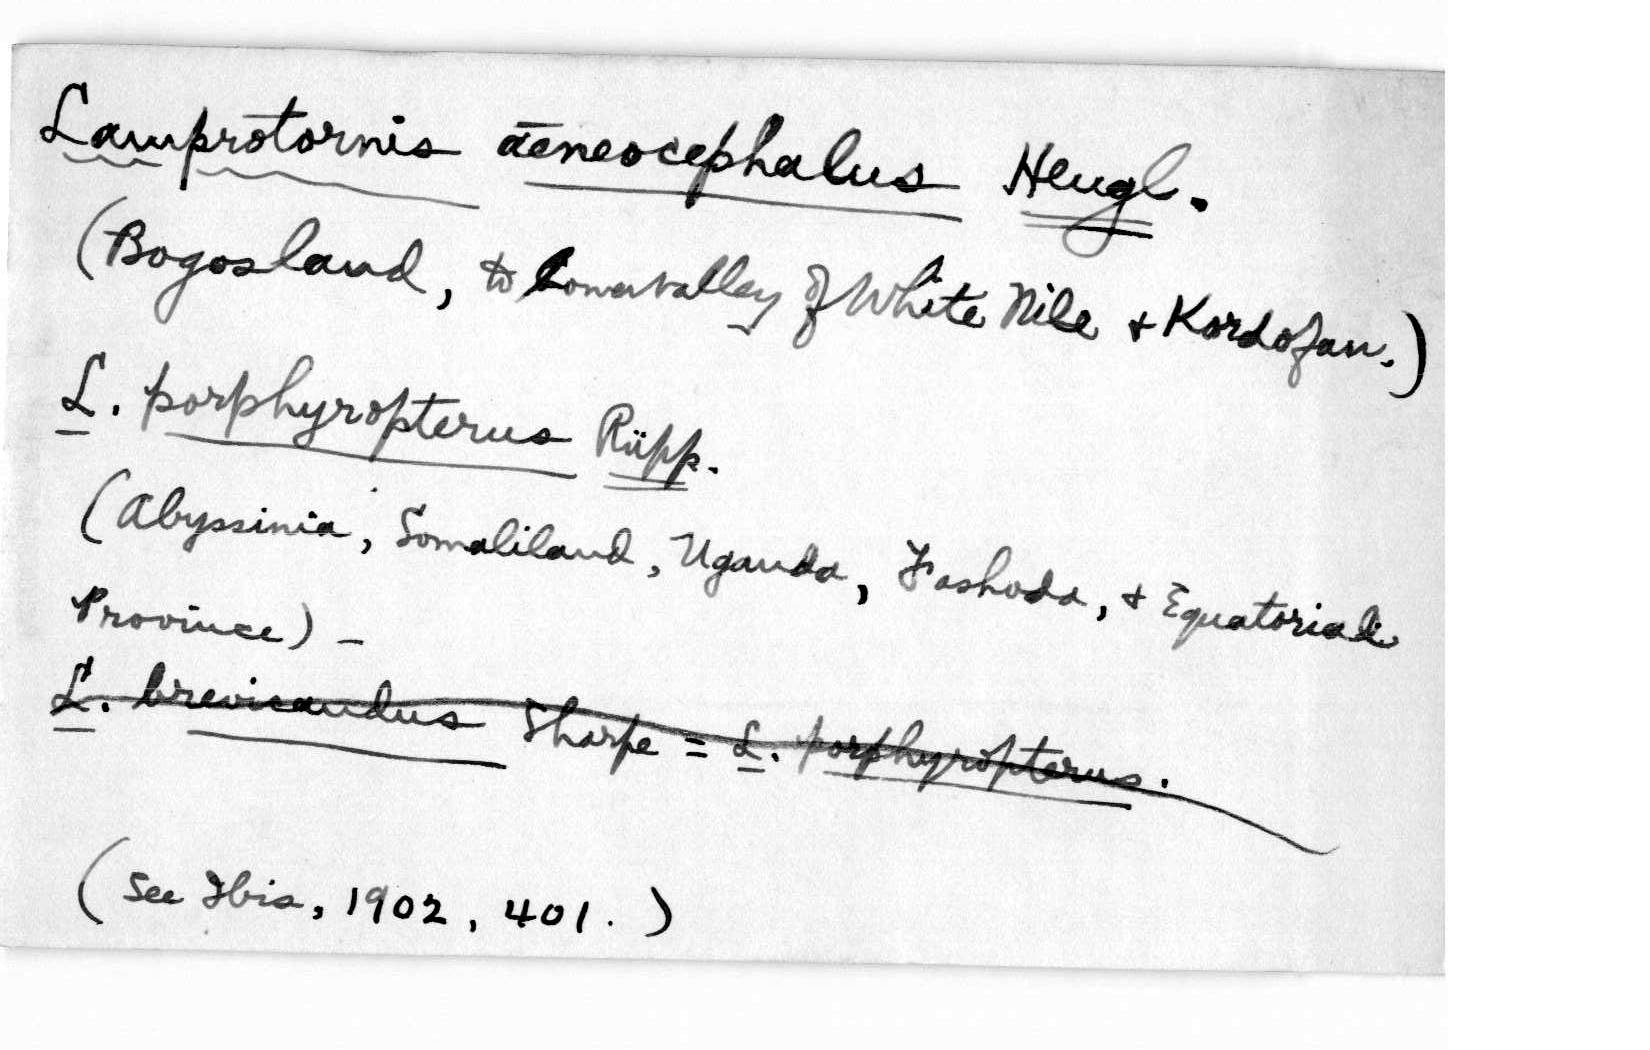 Lamprotornis æneocephalus Heugl.
(Bogosland, to Lower valley of White Nile & Kordofan.)
L. porphyropterus Rüpp.
(Abyssinia, Somaliland, Uganda, Fashoda, & Equatorial
Province) –
L. brevicaudus Sharpe = L. porphyropterus.
(See Ibis, 1902, 401.)